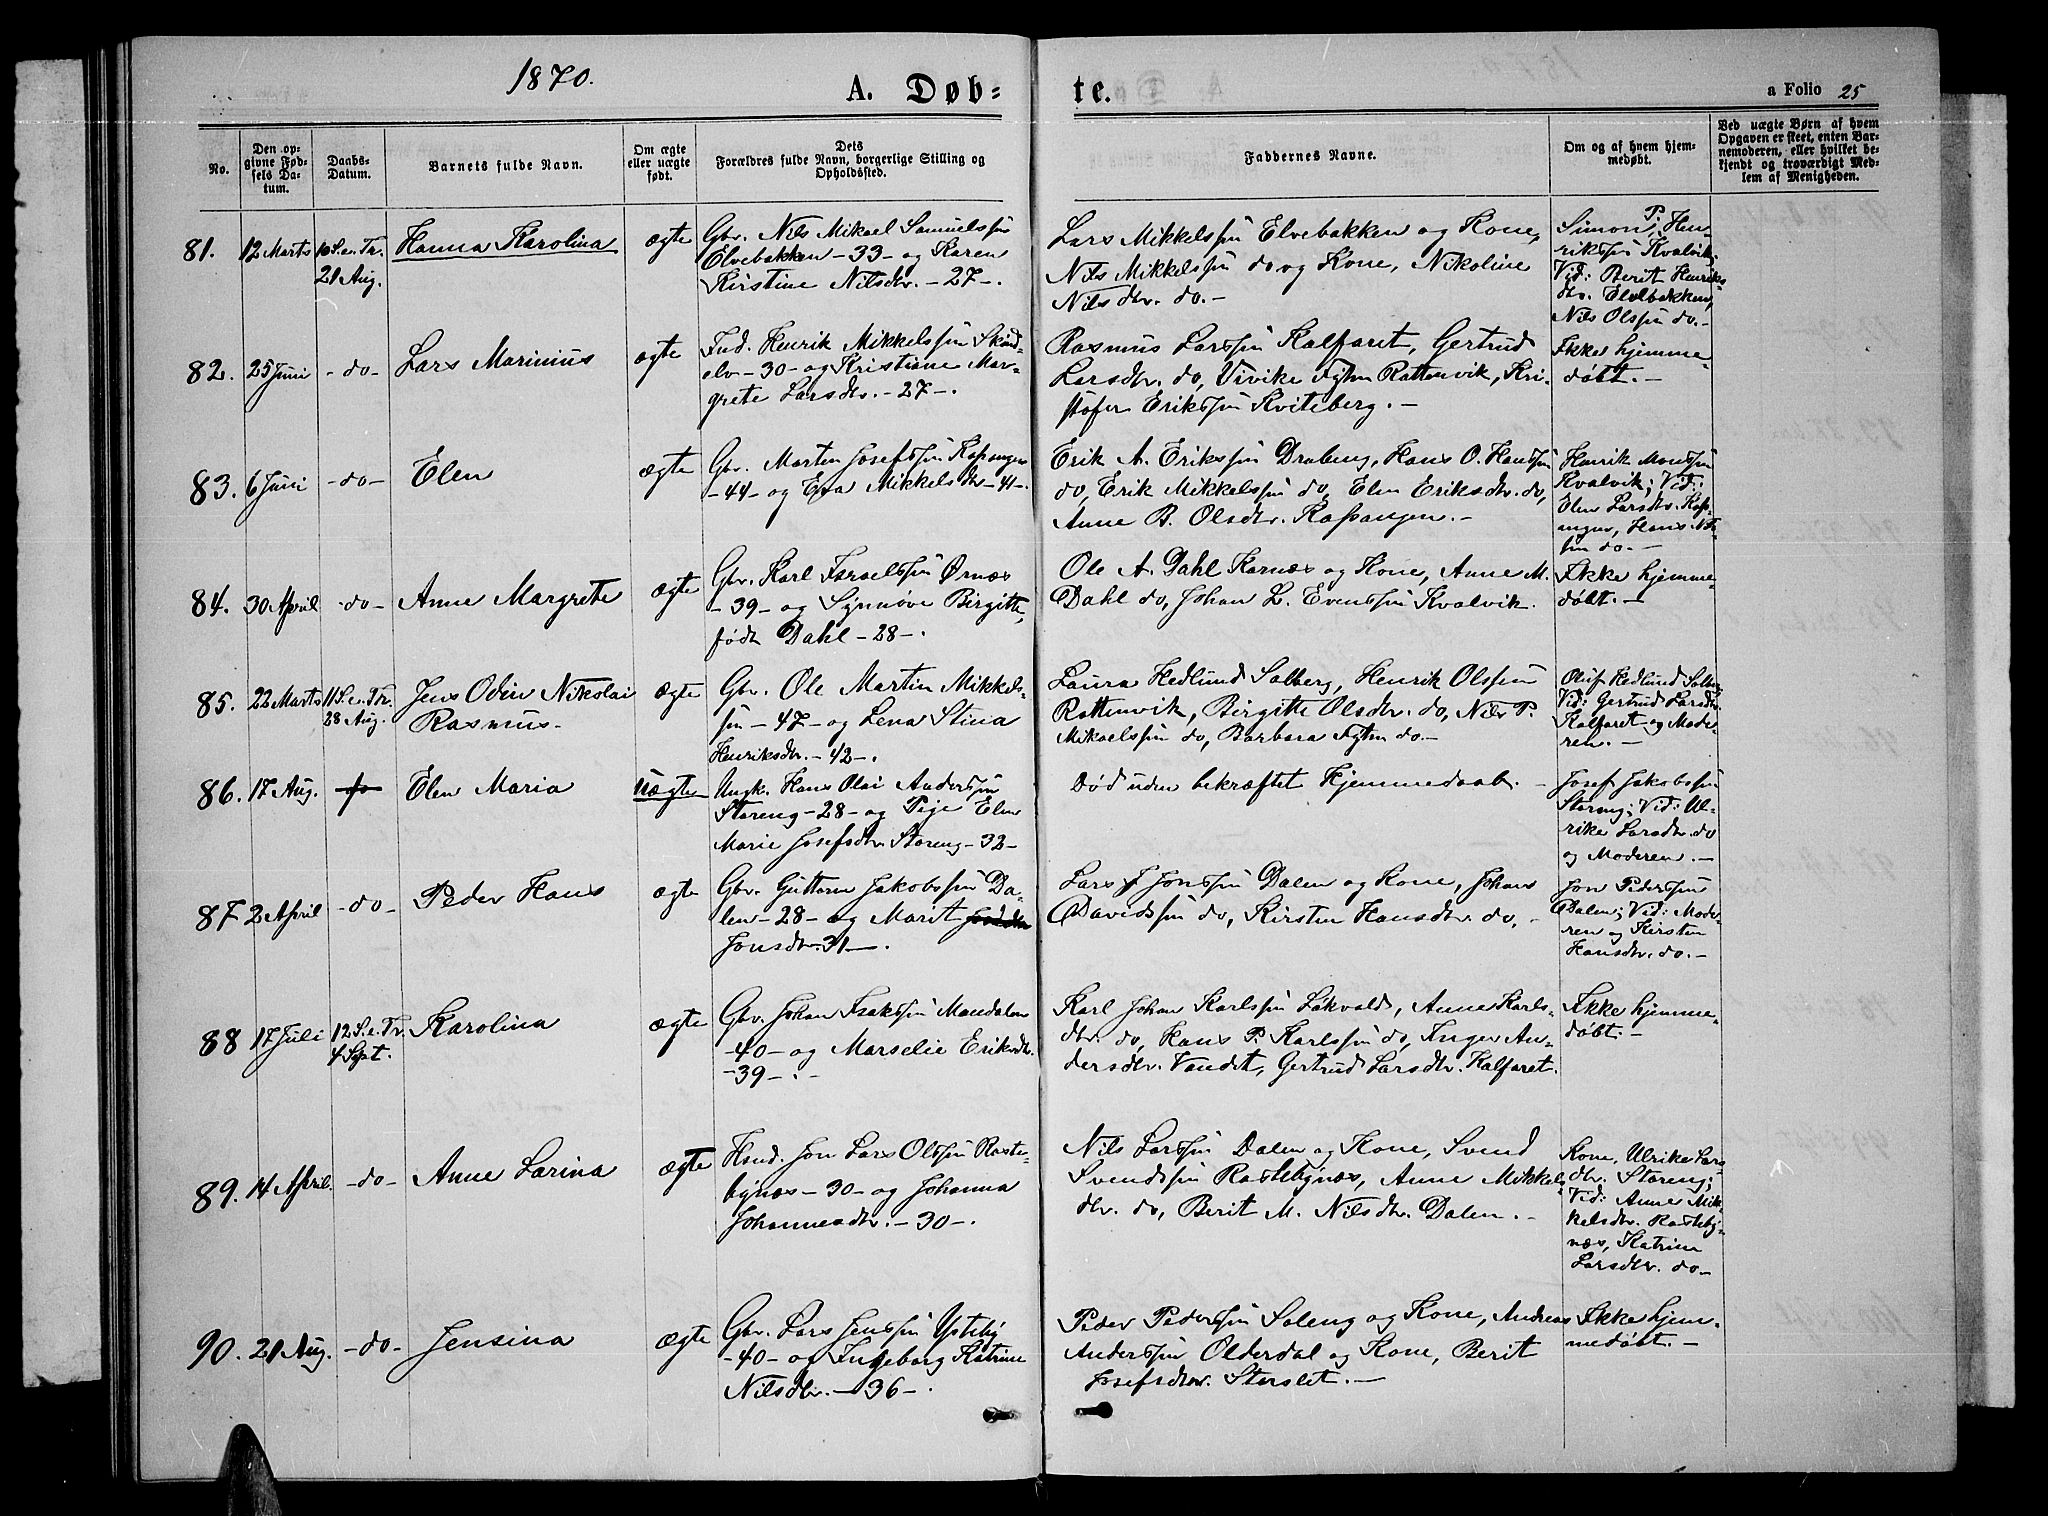 1870.
A. Døb=
te.
a Folio 25
No.
Den op=
givne Fød=
sels Da=
tum.
Daabs=
Datum.
Barnets fulde Navn.
Om ægte
eller uægte
født.
Dets
Forældres fulde Navn, borgerlige Stilling og
Opholdssted.
Faddernes Navne.
Om og af hvem hjem=
medøbt.
Ved uægte Børn af hvem
Opgaven er skeet, enten Bar=
nemoderen, eller hvilket be=
kjendt og troværdigt Med=
lem af Menigheden.
81. 12 Marts 10 S. e. Tr.
21 Aug.
Hanna Karolina
ægte
Gbr. Nils Mikael Samuelssøn
Elvebakken - 33 - og Karen
Kirstine Nilsdtr. - 27 -.
Lars Mikkelssøn Elvebakken og Kone,
Nils Mikkelssøn do og Kone, Nikoline
Nilsdtr. do. -
Simon P. Hen-
rikssøn Kvalvik;
Vid: Berit Henriks
dtr. Elvebakken,
Nils Olssøn do. -
82. 25 Juni - do -
Lars Marinius
ægte
Ind. Henrik Mikkelssøn Skind-
elv - 30 - og Kristiane Mar-
grete Larsdtr. - 27 -.
Rasmus Larssøn Kalfaret, Gertrud
Larsdtr. do, Vivike Figten Rottenvik, Kri-
stofer Erikssøn Kviteberg. -
Ikke hjemme
døbt. -
83. 6 Juni - do -
Elen
ægte
Gbr. Morten Josefssøn Kopangen
- 44 - og Eva Mikkelsdtr - 41 -.
Erik A. Erikssøn Drabeng, Hans O. Hanssøn
do, Erik Mikkelssøn do, Elen Eriksdtr. do,
Anne B. Olsdtr. Kopangen. -
Henrik Monssøn
Kvalvik; Vid:
Elen Larsdtr. Kop-
angen, Hans Nils-
søn do. -
84. 30 April - do -
Anne Margrete
ægte
Gbr. Karl Israelssøn Ørnæs
- 39 - og Synnøve Birgitte,
født Dahl - 28 -.
Ole A. Dahl Karnæs og Kone, Anne M.
Dahl do, Johan L. Evenssøn Kvalvik.
Ikke hjemme-
døbt. -
85. 22 Marts 11 S. e. Tr.
28 Aug.
Jens Odin Nikolai
Rasmus -
ægte
Gbr. Ole Martin Mikkels-
søn - 47 - og Lena Stina
Henriksdtr. - 42 -.
Laura Hedlund Solberg, Henrik Olssøn
Rottenvik, Birgitte Olsdtr. do, Nils P.
Mikaelssøn do, Barbara Figten do. -
Oluf Hedlund Solberg
Vid: Gertrud Larsdtr.
Kalfaret og Mode-
ren. -
86. 17 Aug.
Elen Maria
uægte
Ungk. Hans Olai Anderssøn
Storeng - 28 - og Pige Elen
Marie Josefsdtr Storeng - 32 -
Død uden bekræftet Hjemmedaab. -
Josef Jakobssøn
Storeng; Vid: Ul-
rike Larsdtr. do
og Moderen. -
87. 2 April - do -
Peder Hans
ægte
Gbr. Guttorm Jakobssøn Da-
len - 28 - og Marit
Jonsdtr - 31 -.
Lars J Jonssøn Dalen og Kone, Johan
Davidssøn do, Kirsten Hansdtr. do, -
Jon Pederssøn
Dalen; Vid: Mode-
ren og Kirsten
Hansdtr. do. -
88 17 Juli 12. S. e. Tr.
4 Sept.
Karolina
ægte
Gbr. Johan Isakssøn Mandalen
- 40 - og Marselie Eriksdtr.
- 39 -. -
Karl Johan Karlssøn Løkvold, Anne Karls-
dtr. do, Hans P. Karlssøn do, Inger An-
dersdtr. Vandet, Gertrud Larsdtr. Kalfaret.
Ikke hjemme-
døbt. -
89. 14 April. - do -
Anne Larina
ægte
Hsnd. Jon Lars Olssøn Raste-
bynæs - 30 - og Johanna
Johannesdtr. - 30 -.
Nils Larssøn Dalen og Kone, Svend
Svendssøn Rastebynæs, Anne Mikkels
dtr. do, Berit M. Nilsdtr. Dalen. -
Kone, Ulrike Lars
dtr. Storeng;
Vid: Anne Mik-
kelsdtr. Rasteby-
næs, Katrine
Larsdtr. do -
90. 21 Aug. - do -
Jensina
ægte
Gbr. Lars Jenssøn Ysteby
- 40 - og Ingeborg Katrine
Nilsdtr. - 36 -.
Peder Pederssøn Soleng og Kone, Andreas
Anderssøn Olderdal og Kone, Berit
Josefsdtr. Storslet. -
Ikke hjem-
medøbt. -